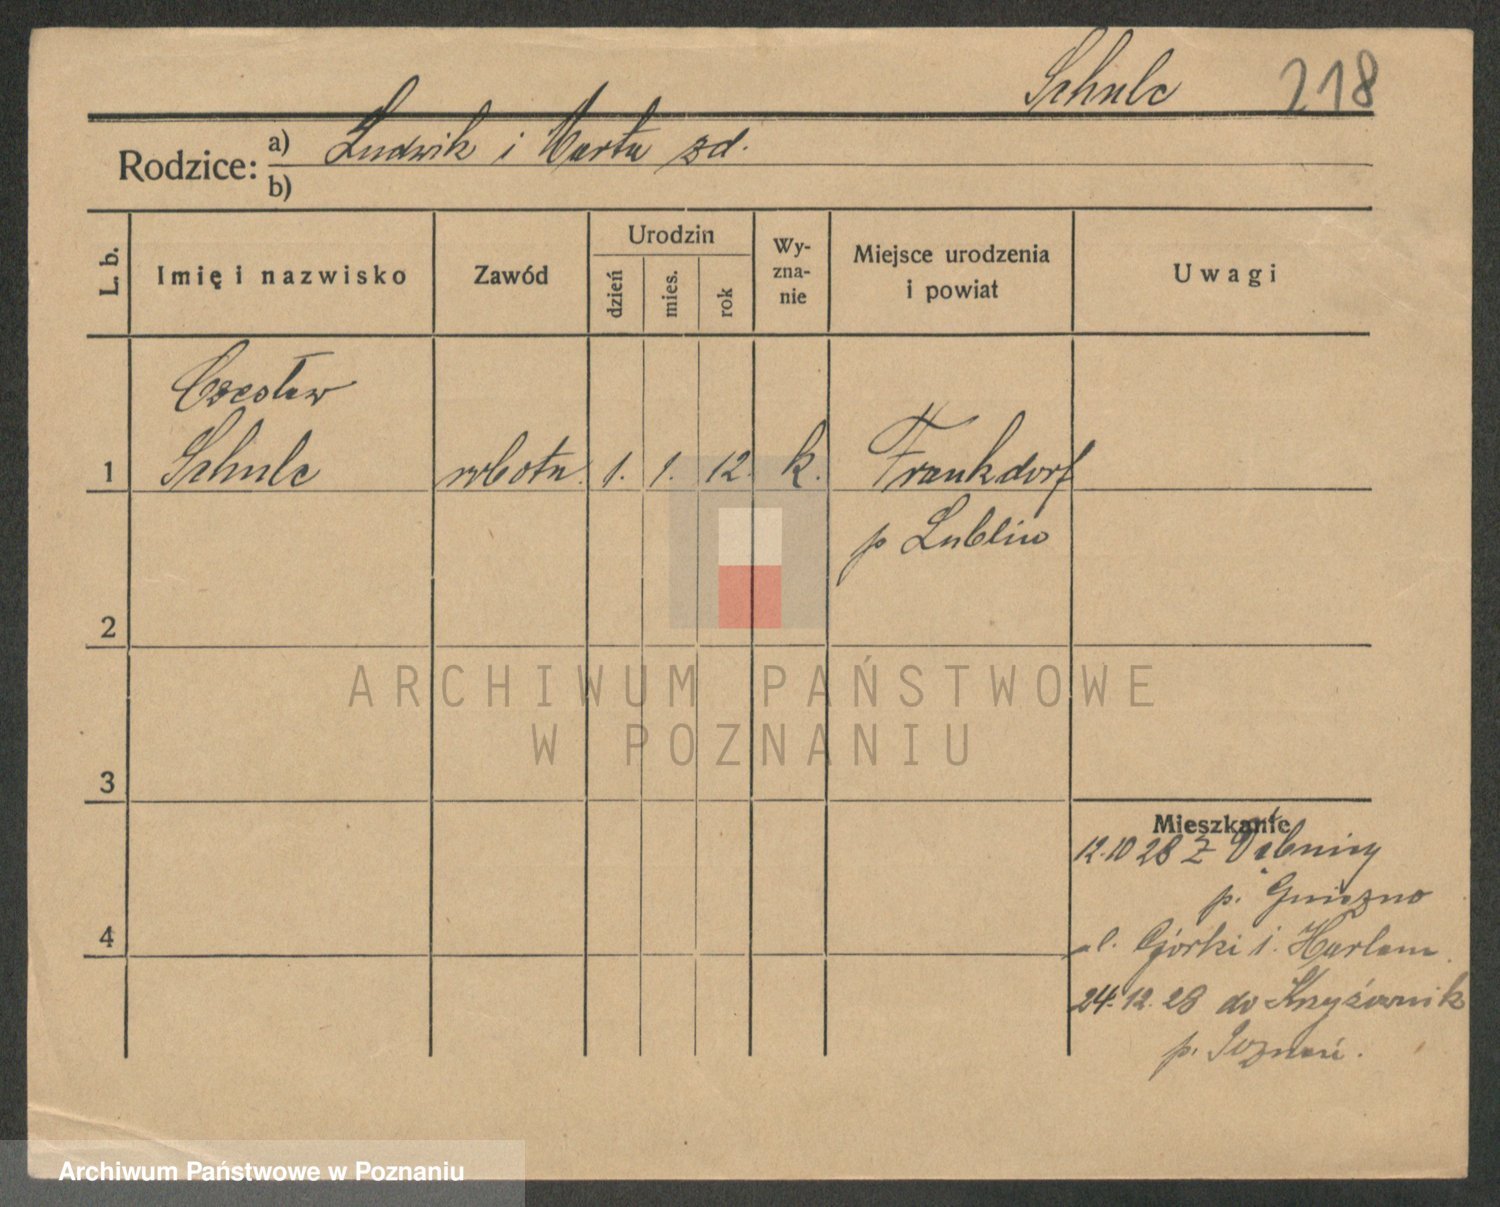 Schulc 218
Rodzice: a) Ludwik i Marta zd.
b)
L. b. Imię i nazwisko Zawód Urodzin dzień mies. rok Wyznanie Miejsce urodzenia i powiat Uwagi
Czesław
1 Schulc robotn. 1. 1. 12. k. Frankdorf
p Lublin
2
ARCHIWUM PAŃSTWOWE
W POZNANIU
3
Mieszkanie
12.10 28 z Dębnicy
p. Gniezno
4
ul. Górki i. Harlam.
24.12.28 do Krzyżownik
p. Poznań.
Archiwum Państwowe w Poznaniu